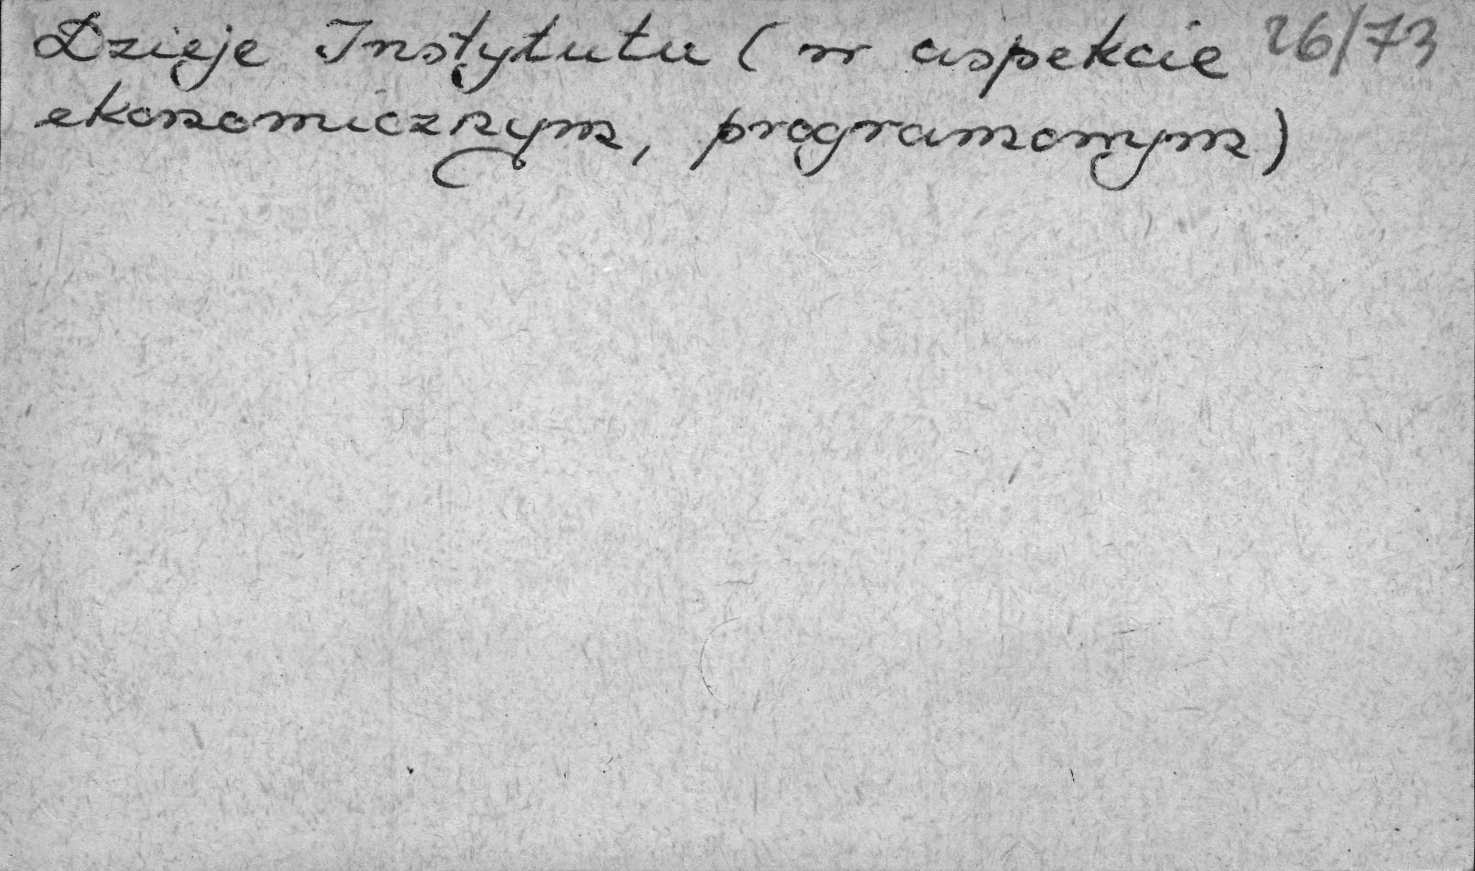 Dzieje Instytutu (w aspekcie 26/73
ekonomicznym, programowym)